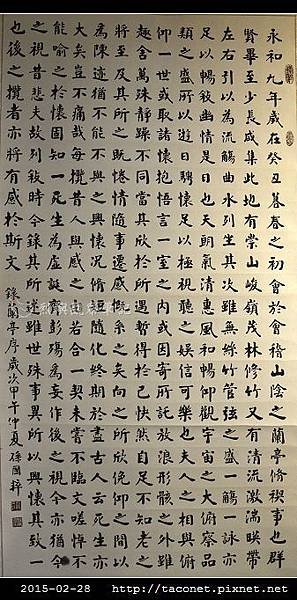 永和九年歲在癸丑暮春之初會於會稽山陰之蘭亭脩稧事也群
賢畢至少長咸集此地有崇山峻嶺茂林脩竹又有清流激湍暎帶
左右引以為流觴曲水列坐其次雖無絲竹管弦之盛一觴一詠亦
足以暢敘幽情是日也天朗氣清惠風和暢仰觀宇宙之大俯察品
類之盛所以遊目騁懷足以極視聽之娛信可樂也夫人之相與俯
仰一世或取諸懷抱悟言一室之內或因寄所託放浪形骸之外雖
趣舍萬殊靜躁不同當其欣於所遇暫得於己快然自足不知老之
將至及其所之既惓情隨事遷感慨係之矣向之所欣俛仰之間以
為陳迹猶不能不以之興懷況脩短隨化終期於盡古人云死生亦
大矣豈不痛哉每攬昔人興感之由若合一契未嘗不臨文嗟悼不
能喻之於懷固知一死生為虛誕齊彭殤為妄作後之視今亦猶今
之視昔悲夫故列敘時人錄其所述雖世殊事異所以興懷其致一
也後之攬者亦將有感於斯文 錄蘭亭序歲次甲午仲夏孫國粹
2015-02-28 http://taconet.pixnet.net/blog